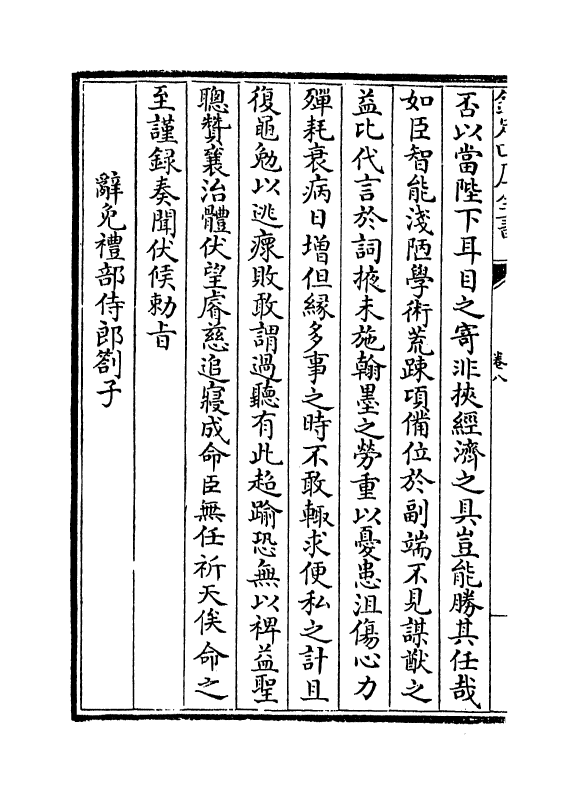 欽定四庫全書
卷八
否以當陛下耳目之寄非挾經濟之具豈能勝其任哉
如臣智能淺陋學術荒踈項備位於副端不見謀猷之
益比代言於詞掖未施翰墨之勞重以憂患沮傷心力
殫耗衰病日増但緣多事之時不敢輙求便私之計且
復黽勉以逃瘝敗敢謂過聽有此超踰恐無以裨益聖
聰贊襄治體伏望睿慈追寢成命臣無任祈天俟命之
至謹録奏聞伏候勅㫖
辭免禮部侍郎劄子